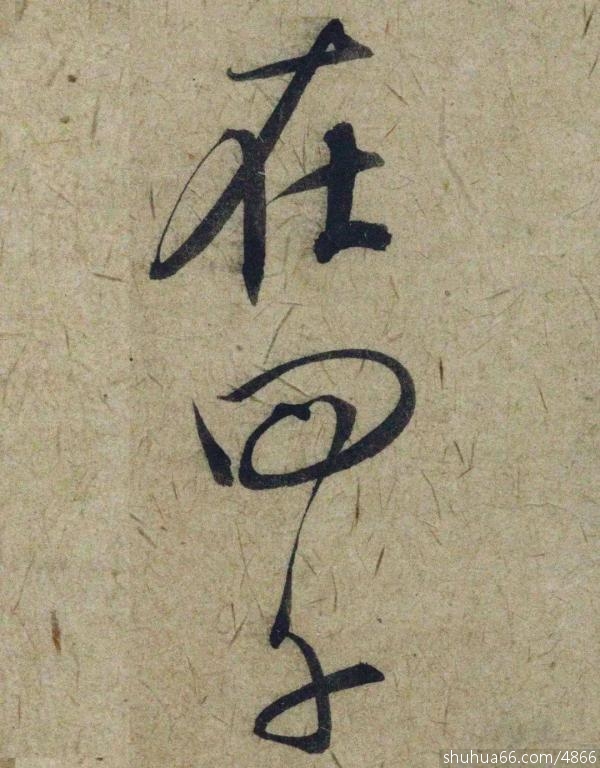 在甲子
shuhua66.com/4866